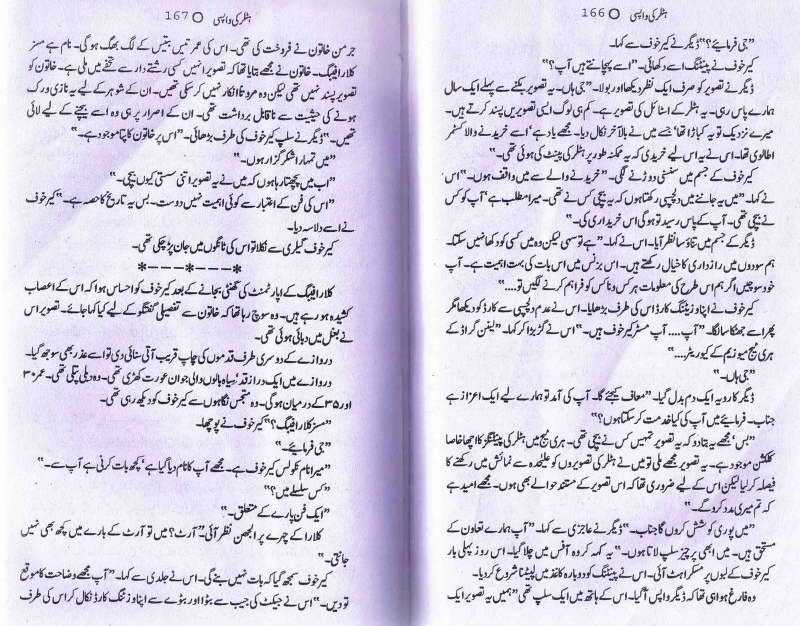 ہٹلر کی واپسی O 166
”جی فرمائیے؟“ ڈیگر نے کیرخوف سے کہا۔
کیرخوف نے پینٹنگ اسے دکھائی۔ ”اسے پہچانتے ہیں آپ؟“
ڈیگر نے تصویر کو صرف ایک نظر دیکھا اور بولا۔ ”جی ہاں۔ یہ تصویر بکنے سے پہلے ایک سال
ہمارے پاس رہی۔ یہ ہٹلر کے اسٹائل کی تصویر ہے۔ کم ہی لوگ ایسی تصویریں پسند کرتے ہیں۔
میرے نزدیک تو یہ کباڑا تھا‘ جسے میں نے بالآخر نکال دیا۔ مجھے یاد ہے‘ اسے خریدنے والا کسٹمر
اطالوی تھا۔ اس نے یہ اس لیے خریدی کہ یہ ممکنہ طور پر ہٹلر کی پینٹ کی ہوئی تھی۔“
کیرخوف کے جسم میں سنسنی دوڑنے لگی۔ ”خریدنے والے سے میں واقف ہوں۔“ اس
نے کہا۔ ”میں یہ جاننے میں دلچسپی رکھتا ہوں کہ یہ بیچی کس نے تھی۔ میرا مطلب ہے‘ آپ کو کس
نے بیچی تھی۔ آپ کے پاس رسید تو ہوگی اس خریداری کی۔“
ڈیگر کے جسم میں تناؤ سا نظر آیا۔ اس نے کہا۔ ”ہے تو سہی لیکن وہ میں کسی کو دکھا نہیں سکتا۔
ہم سودوں میں رازداری کا خیال رکھتے ہیں۔ اس بزنس میں اس بات کی بہت اہمیت ہے۔ آپ
خود سوچیں اگر ہم اس طرح کی معلومات ہر کس و ناکس کو فراہم کرنے لگیں تو....“
کیرخوف نے اپنا وزیٹنگ کارڈ اس کی طرف بڑھایا۔ اس نے عدم دلچسپی سے کارڈ کو دیکھا مگر
پھر اسے جھٹکا سا لگا۔ ”آپ.... آپ مسٹر کیرخوف ہیں۔“ اس نے گڑبڑا کر کہا۔ ”لینن گراڈ کے
ہری ٹیج میوزیم کے کیوریٹر....“
”جی ہاں۔“
ڈیگر کا رویہ ایک دم بدل گیا۔ ”معاف کیجئے گا۔ آپ کی آمد تو ہمارے لیے ایک اعزاز ہے
جناب۔ فرمائیے میں آپ کی کیا خدمت کر سکتا ہوں؟“
”بس‘ مجھے یہ بتا دو کہ یہ تصویر تمہیں کس نے بیچی تھی۔ ہری ٹیج میں ہٹلر کی پینٹنگز کا اچھا خاصا
کلکشن موجود ہے۔ یہ تصویر مجھے ملی تو میں نے ہٹلر کی تصویروں کو علیحدہ سے نمائش میں رکھنے کا
فیصلہ کر لیا لیکن اس کے لیے ضروری تھا کہ اس تصویر کے مستند حوالے بھی ہوں۔ مجھے امید ہے
کہ تم میری مدد کرو گے۔“
”میں پوری کوشش کروں گا جناب۔“ ڈیگر نے عاجزی سے کہا۔ ”آپ ہمارے تعاون کے
مستحق ہیں۔ میں ابھی پرچیز سلپ لاتا ہوں۔“ یہ کہہ کر وہ آفس میں چلا گیا۔ اس روز پہلی بار
کیرخوف کے لبوں پر مسکراہٹ آئی۔ اس نے پینٹنگ کو دوبارہ کاغذ میں لپیٹنا شروع کر دیا۔
وہ فارغ ہوا ہی تھا کہ ڈیگر واپس آ گیا۔ اس کے ہاتھ میں ایک سلپ تھی ”ہمیں یہ تصویر ایک
ہٹلر کی واپسی O 167
جرمن خاتون نے فروخت کی تھی۔ اس کی عمر تیس بتیس کے لگ بھگ ہوگی۔ نام ہے مسز
کلارا فیبگ۔ خاتون نے مجھے بتایا تھا کہ تصویر انہیں کسی رشتے دار سے تحفے میں ملی ہے۔ خاتون کو
تصویر پسند نہیں تھی لیکن وہ مروتاً انکار نہیں کر سکی تھیں۔ ان کے شوہر کے لیے یہ نازی ورک
ہونے کی حیثیت سے ناقابل برداشت تھی۔ ان کے اصرار پر ہی وہ اسے بیچنے کے لیے لائی
تھیں۔“ ڈیگر نے سلپ کیرخوف کی طرف بڑھائی۔ ”اس پر خاتون کا پتا موجود ہے۔“
”میں تمہارا شکر گزار ہوں۔“
”اب میں پچھتا رہا ہوں کہ میں نے یہ تصویر اتنی سستی کیوں بیچی۔“
”اس کی فن کے اعتبار سے کوئی اہمیت نہیں دوست۔ بس یہ تاریخ کا حصہ ہے۔“ کیرخوف
نے اسے دلاسہ دیا۔
کیرخوف گیلری سے نکلا تو اس کی ٹانگوں میں جان پڑ چکی تھی۔
*---*---*
کلارا فیبگ کے اپارٹمنٹ کی گھنٹی بجانے کے بعد کیرخوف کو احساس ہوا کہ اس کے اعصاب
کشیدہ ہو رہے ہیں۔ وہ سوچ رہا تھا کہ خاتون سے تفصیلی گفتگو کے لیے کیا کہا جائے۔ تصویر اس
نے بغل میں دبائی ہوئی تھی۔
دروازے کے دوسری طرف قدموں کی چاپ قریب آتی سنائی دی تو اسے عذر بھی سوجھ گیا۔
دروازے میں ایک دراز قد‘ سیاہ بالوں والی جوان عورت کھڑی تھی۔ وہ دبلی پتلی تھی۔ عمر ۳۰
اور ۳۵ کے درمیان ہوگی۔ وہ متجسس نگاہوں سے کیرخوف کو دیکھ رہی تھی۔
”مسز کلارا فیبگ؟“ کیرخوف نے پوچھا۔
”جی فرمائیے۔“
”میرا نام نکولس کیرخوف ہے۔ مجھے آپ کا نام دیا گیا ہے‘ کچھ بات کرنی ہے آپ سے۔“
”کس سلسلے میں؟“
”ایک فن پارے کے متعلق۔“
کلارا کے چہرے پر الجھن نظر آئی۔ ”آرٹ؟ میں تو آرٹ کے بارے میں کچھ بھی نہیں
جانتی۔“
کیرخوف سمجھ گیا کہ بات نہیں بنے گی۔ اس نے جلدی سے کہا۔ ”آپ مجھے وضاحت کا موقع
تو دیں۔“ اس نے جیکٹ کی جیب سے بٹوا اور بٹوے سے اپنا وزٹنگ کارڈ نکال کر اس کی طرف